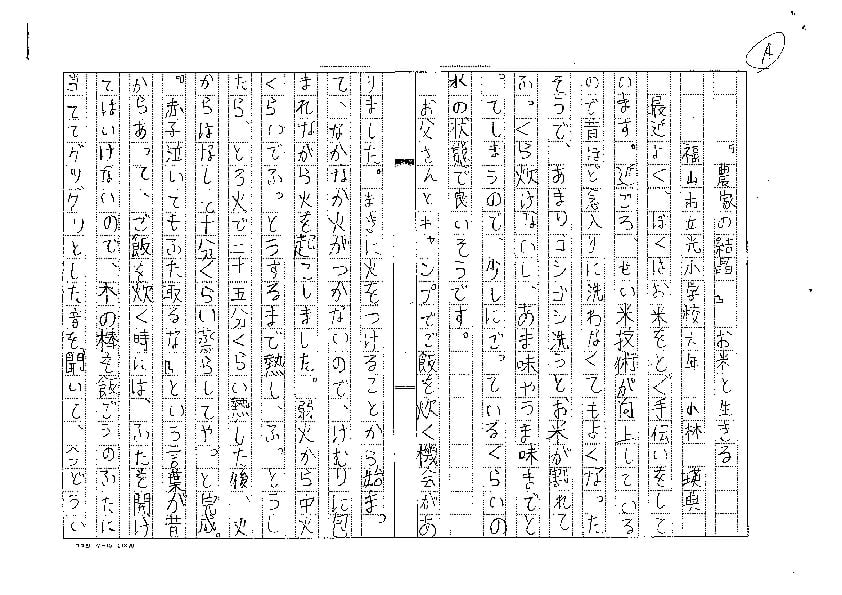 A
『農家の結晶』お米と生きる
福山市立光小学校六年　小林
最近よく、ぼくはお米をとぐ手伝いをして
います。近ごろ、せい米技術が向上している
ので昔ほど念入りに洗わなくてもよくなった
そうで、あまりゴシゴシ洗うとお米が割れて
ふっくら炊けないし、あま味やうま味までと
ってしまうので、少しにごっているくらいの
水の状態で良いそうです。
お父さんとキャンプでご飯を炊く機会があ
りました。まきに火をつけることから始まっ
て、なかなか火がつかないので、けむりに包
まれながら火を起こしました。弱火から中火
くらいでふっとうするまで熱し、ふっとうし
たら、とろ火で二十五分くらい熱した後、火
からはなして十分くらい蒸らしてやっと完成。
『赤子泣いてもふた取るな』という言葉が昔
からあって、ご飯を炊く時には、ふたを開け
てはいけないので、木の棒を飯ごうのふたに
当ててグツグツとした音を聞いて、ふっとうい